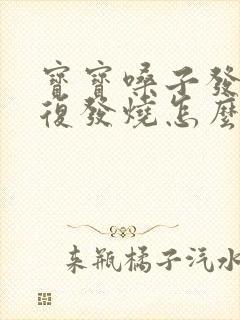 寶寶嗓子發
復發燒怎麼
来瓶橘子汽水